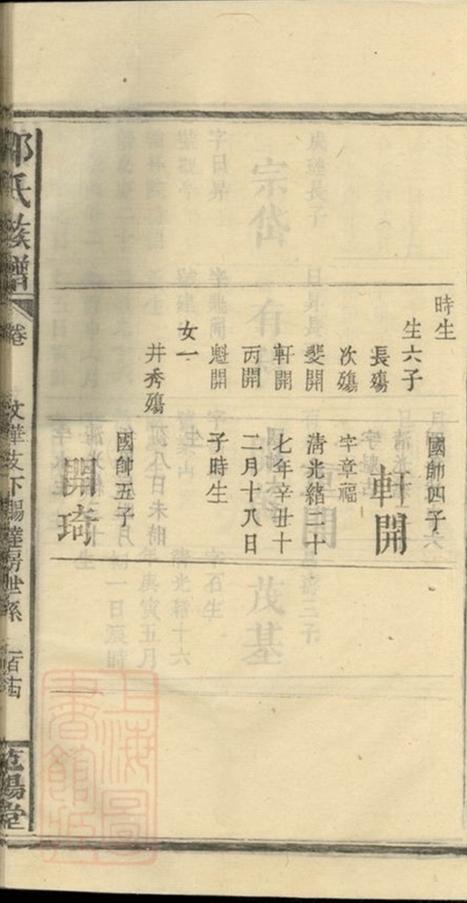 時生
生六子
長殤
次殤
斐開
軒開
丙開
魁開
女一
井秀殤
國帥四子
軒開
字章福
清光緒二十
七年辛丑十
二月十八日
子時生
國帥五子
開琦
氏族譜
卷
文華支下賜達房世系
上海圖書館藏